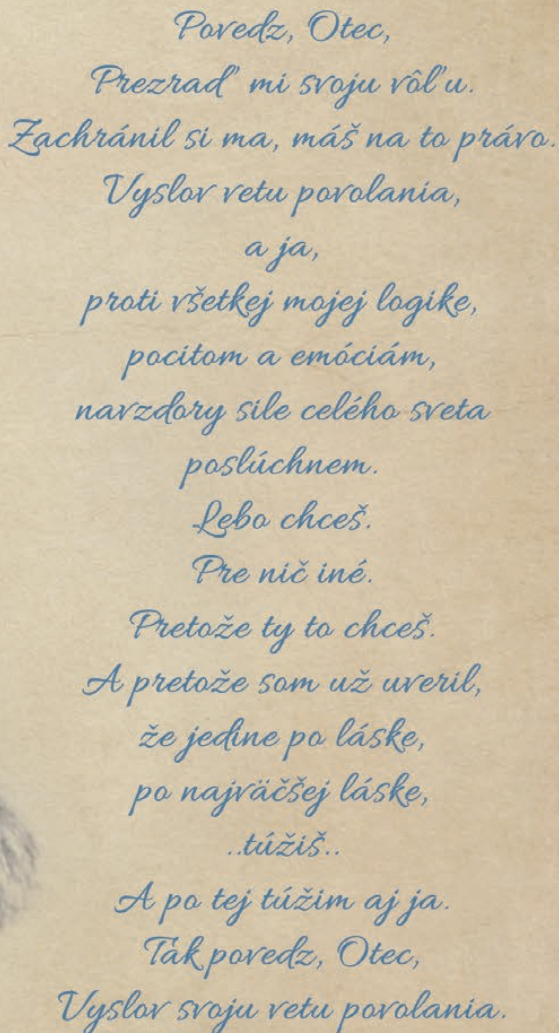 Povedz, Otec,
Prezraď mi svoju vôľu.
Zachránil si ma, máš na to právo.
Vyslov vetu povolania,
a ja,
proti všetkej mojej logike,
pocitom a emóciám,
navzdory sile celého sveta
poslúchnem.
Lebo chceš.
Pre nič iné.
Pretože ty to chceš.
A pretože som už uveril,
že jedine po láske,
po najväčšej láske,
..túžiš..
A po tej túžim aj ja.
Tak povedz, Otec,
Vyslov svoju vetu povolania.